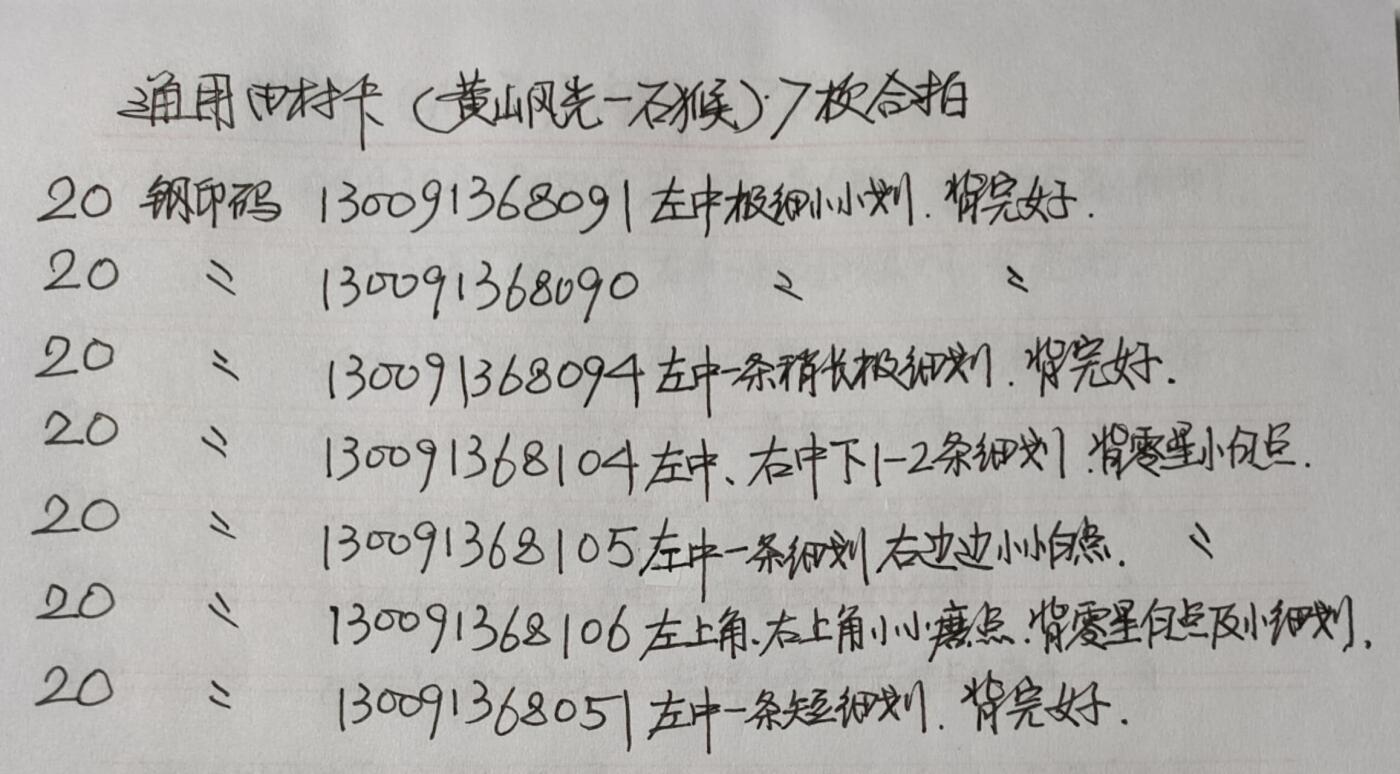 通用田村卡(黄山风光一石猴).7枚合拍
20 钢印码 130091368091 左中极细小小划.背完好.
20 〃 130091368090 〃 〃
20 〃 130091368094 左中一条稍长极细划.背完好.
20 〃 130091368104 左中、右中下1-2条细划.背零星小白点.
20 〃 130091368105 左中一条细划 右边边小小白点. 〃
20 〃 130091368106 左上角.右上角小小磨点.背零星白点及小细划.
20 〃 130091368051 左中一条短细划.背完好.